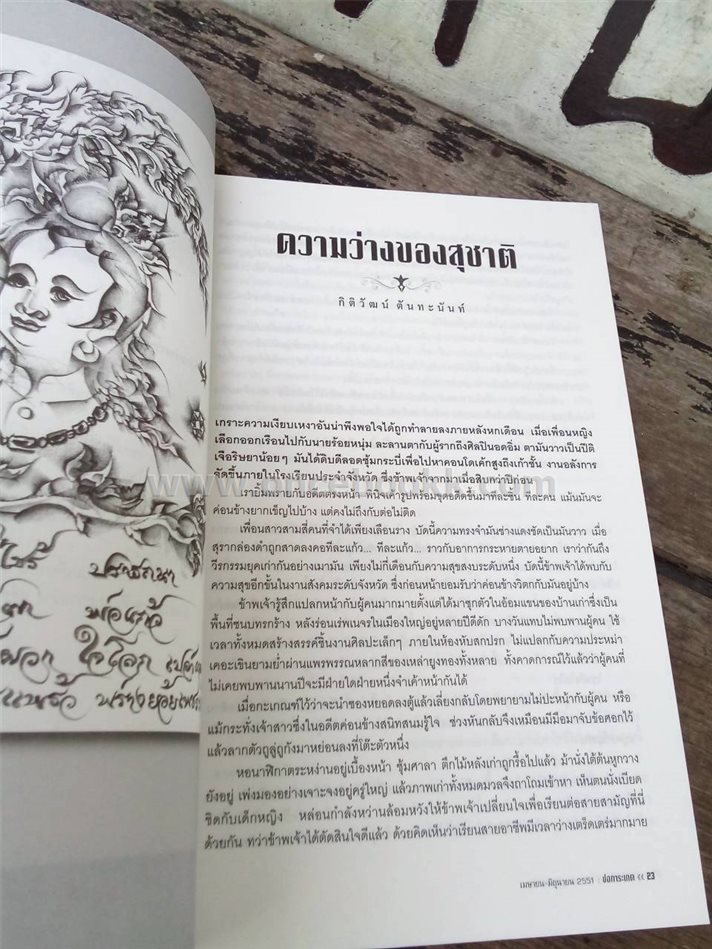 ความว่างของสุชาติ
กิติวัฒน์ ตันทะนันท์
เกราะความเงียบเหงาอันน่าพึงพอใจได้ถูกทำลายลงภายหลังหกเดือน เมื่อเพื่อนหญิง
เลือกออกเรือนไปกับนายร้อยหนุ่ม ละลานตากับผู้รากถึงศิลปินอดอิ่ม ตามันวาวเป็นปีติ
เจือริษยาน้อยๆ มันได้ดิบดีลอดซุ้มกระบี่เพื่อไปหาคอนโดเค้กสูงถึงเก้าชั้น งานอลังการ
จัดขึ้นภายในโรงเรียนประจำจังหวัด ที่ข้าพเจ้าจากมาเมื่อสิบกว่าปีก่อน
เรายิ้มพรายกับอดีตตรงหน้า พินิจเค้ารูปพร้อมขุดอดีตขึ้นมาทีละชิ้น ทีละคน แม้มันจะ
ค่อนข้างยากเข็ญไปบ้าง แต่คงไม่ถึงกับต่อไม่ติด
เพื่อนสาวสามสี่คนที่จำได้เพียงเลือนราง บัดนี้ความทรงจำมันช่างแดงชัดเป็นมันวาว เมื่อ
สุรากล่องดำถูกสาดลงคอทีละแก้ว... ทีละแก้ว... ราวกับอาการกระหายตายอยาก เราว่ากันถึง
วีรกรรมยุคเก่ากันอย่างเมามัน เพียงไม่กี่เดือนกับความสุขสงบระดับหนึ่ง บัดนี้ข้าพเจ้าได้พบกับ
ความสุขอีกขั้นในงานสังคมระดับจังหวัด ซึ่งก่อนหน้ายอมรับว่าค่อนข้างวิตกกับมันอยู่บ้าง
ข้าพเจ้ารู้สึกแปลกหน้ากับผู้คนมากมายตั้งแต่ได้มาซุกตัวในอ้อมแขนของบ้านเก่าซึ่งเป็น
พื้นที่ชนบทรกร้าง หลังร่อนเร่พเนจรในเมืองใหญ่อยู่หลายปีดีดัก บางวันแทบไม่พบพานผู้คน ใช้
เวลาทั้งหมดสร้างสรรค์ชิ้นงานศิลปะเล็กๆ ภายในห้องหับสกปรก ไม่แปลกกับความประหม่า
เคอะเขินยามย่ำผ่านแพรพรรณหลากสีของเหล่ายูงทองทั้งหลาย ทั้งคาดการณ์ไว้แล้วว่าผู้คนที่
ไม่เคยพบพานนานปีจะมีฝ่ายใดฝ่ายหนึ่งจำเค้าหน้ากันได้
เมื่อกะเกณฑ์ไว้ว่าจะนำซองหยอดลงตู้แล้วเลี่ยงกลับโดยพยายามไม่ปะหน้ากับผู้คน หรือ
แม้กระทั่งเจ้าสาวซึ่งในอดีตค่อนข้างสนิทสนมรู้ใจ ช่วงหันกลับจึงเหมือนมีมือมาจับข้อศอกไว้
แล้วลากตัวถูลู่ถูกังมาหย่อนลงที่โต๊ะตัวหนึ่ง
หอนาฬิกาตระหง่านอยู่เบื้องหน้า ซุ้มศาลา ตึกไม้หลังเก่าถูกรื้อไปแล้ว ม้านั่งใต้ต้นหูกวาง
ยังอยู่ เพ่งมองอย่างเจาะจงอยู่ครู่ใหญ่ แล้วภาพเก่าทั้งหมดมวลจึงถาโถมเข้าหา เห็นตนนั่งเบียด
ชิดกับเด็กหญิง หล่อนกำลังหว่านล้อมหวังให้ข้าพเจ้าเปลี่ยนใจเพื่อเรียนต่อสายสามัญที่นี่
ด้วยกัน ทว่าข้าพเจ้าได้ตัดสินใจดีแล้ว ด้วยคิดเห็นว่าเรียนสายอาชีพมีเวลาว่างเตร็ดเตร่มากมาย
เมษายน-มิถุนายน 2551 : ช่อการะเกด << 23